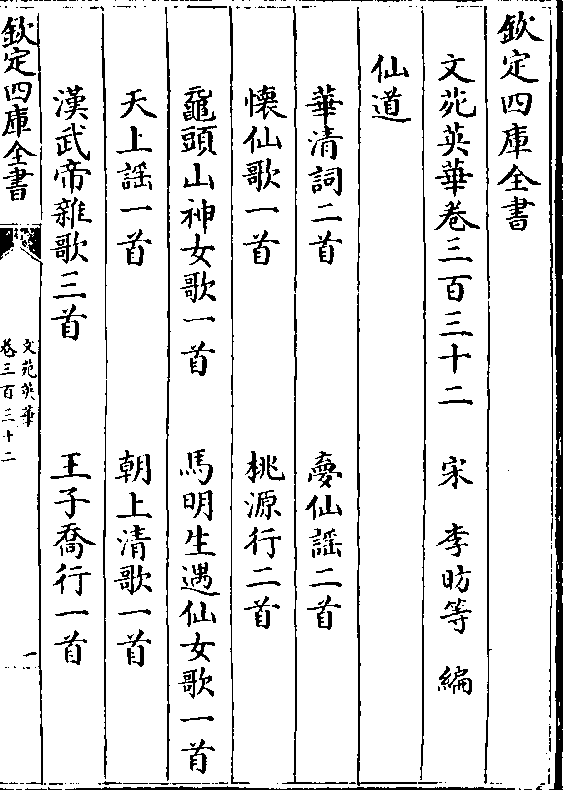 欽定四庫全書
文苑英華卷三百三十二　宋　李昉等　編
仙道
華清詞二首　夣仙謡二首
懐仙歌一首　桃源行二首
龜頭山神女歌一首　馬明生遇仙女歌一首
天上謡一首　朝上清歌一首
漢武帝雜歌三首　王子喬行一首
欽定四庫全書
文苑英華
卷三百三十二
一